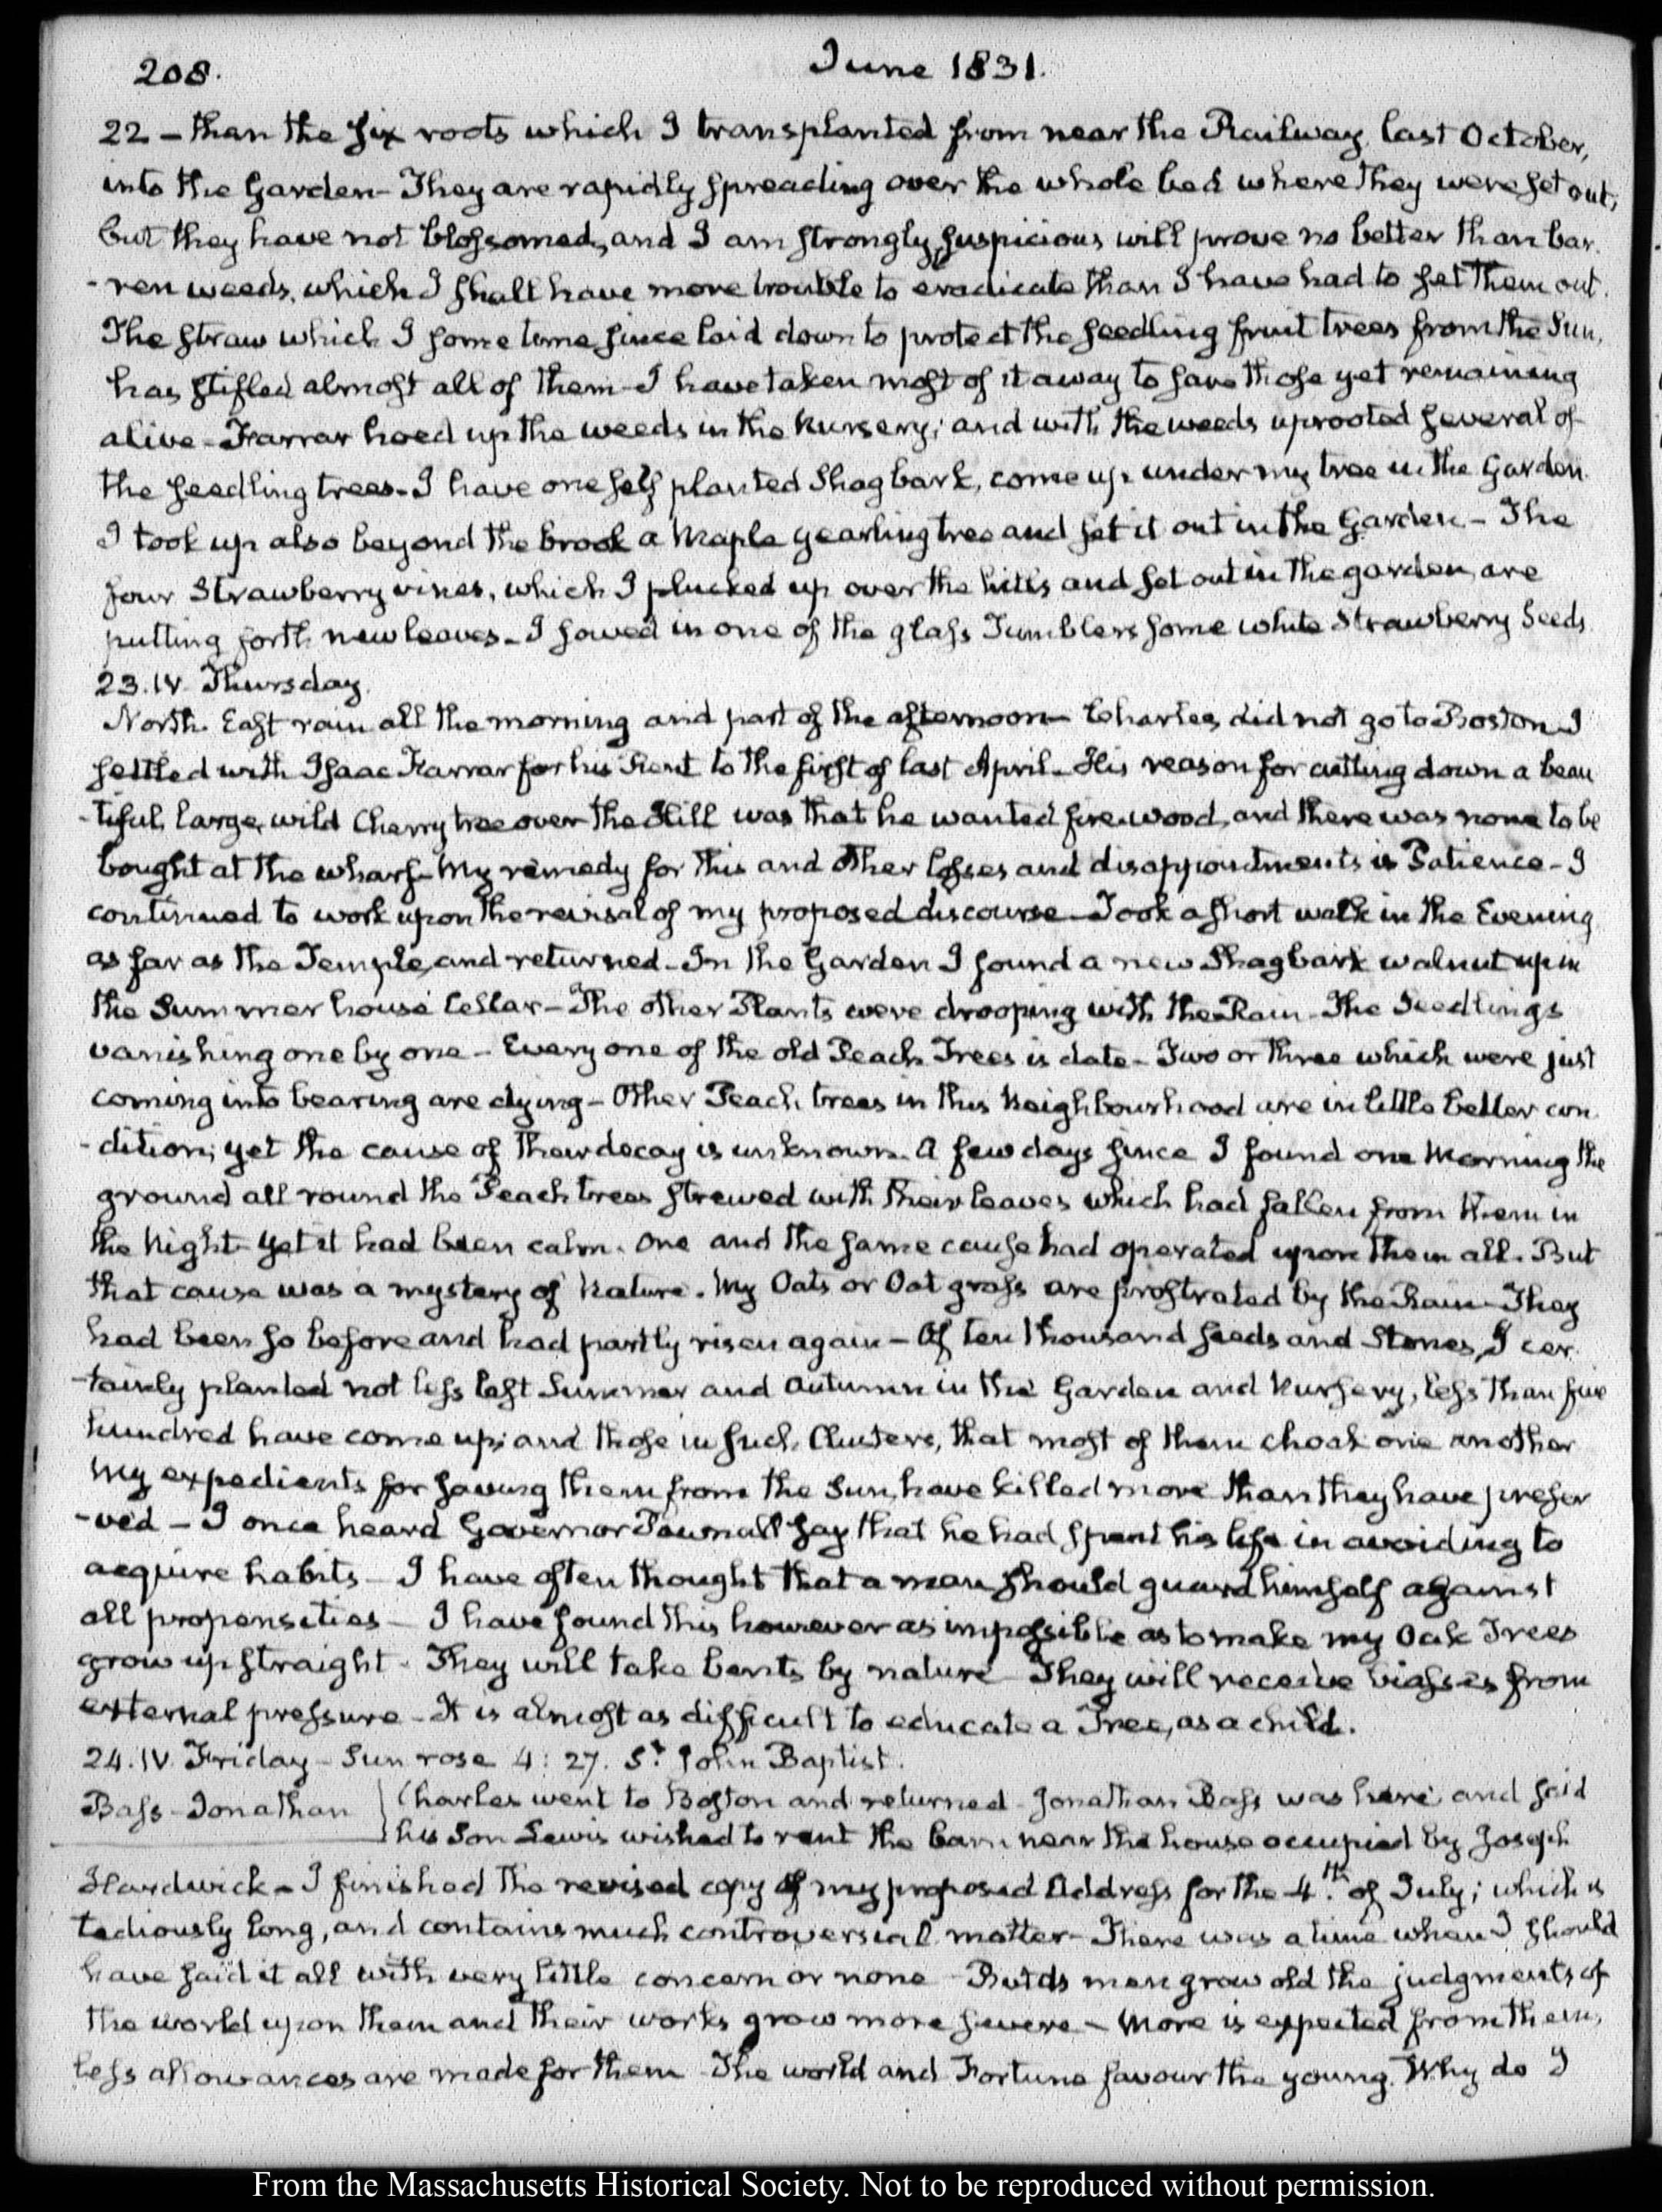 208.
June 1831.
22 – than the six roots which I transplanted from near the Railway last October,
into the Garden – They are rapidly spreading over the whole bed where they were set out;
but they have not blossomed, and I am strongly suspicious will prove no better than bar
-ren weeds, which I shall have more trouble to eradicate than I have had to set them out.
The straw which I some time since laid down to protect the seedling fruit trees from the Sun,
has stifled almost all of them – I have taken most of it away to save those yet remaining
alive – Farrar hoed up the weeds in the Nursery; and with the weeds uprooted several of
the seedling trees – I have one self planted Shagbark, come up under my tree in the Garden.
I took up also beyond the brook a Maple yearling tree and set it out in the Garden – The
four Strawberry vines, which I plucked up over the hills and set out in the garden, are
putting forth new leaves – I sowed in one of the glass Tumblers some white Strawberry Seeds.
23. IV. Thursday.
North. East rain all the morning and part of the afternoon – Charles did not go to Boston – I
settled with Isaac Farrar for his Rent to the first of last April – His reason for cutting down a beau
-tiful, large, wild Cherry tree over the Hill was that he wanted fire-wood, and there was none to be
bought at the wharf – My remedy for this and other losses and disappointments is Patience – I
continued to work upon the revisal of my proposed discourse – Took a short walk in the Evening
as far as the Temple, and returned – In the Garden I found a new Shagbark walnut up in
the Summer house Cellar – The other Plants were drooping with the Rain – The Seedlings
vanishing one by one – Every one of the old Peach Trees is date – Two or three which were just
coming into bearing are dying – Other Peach trees in this Neighbourhood are in little better con
-dition; yet the cause of their decay is unknown. A few days since I found one Morning the
ground all round the Peach trees strewed with their leaves which had fallen from them in
the Night – Yet it had been calm. One and the same cause had operated upon them all. But
that cause was a mystery of Nature. My Oats or Oat grass are prostrated by the Rain – They
had been so before and had partly risen again – Of ten thousand seeds and Stones, I cer
-tainly planted not less last Summer and Autumn in the Garden and Nursery, less than five
hundred have come up; and those in such Clusters, that most of them choak one another
My expedients for saving them from the Sun, have killed more than they have preser
-ved – I once heard Governor Pownall say that he had spent his life in avoiding to
acquire habits – I have often thought that a man should guard himself against
all propensities – I have found this however as impossible as to make my Oak Trees
grow up straight – They will take bents by nature – They will receive biasses from
external pressure – It is almost as difficult to educate a Tree, as a child.
24. IV. Friday – Sun rose 4: 27. St. John Baptist.
Bass – Jonathan
Charles went to Boston and returned – Jonathan Bass was here, and said
his Son Lewis wished to rent the barn near the house occupied by Joseph
Hardwick – I finished the revised copy of my proposed Address for the 4.th of July; which is
tediously long, and contains much controversial matter – There was a time when I should
have said it all with very little concern or none – But as men grow old the judgments of
the world upon them and their works grow more severe – More is expected from them,
less allowances are made for them – The world and Fortune favour the young. Why do I
From the Massachusetts Historical Society. Not to be reproduced without permission.